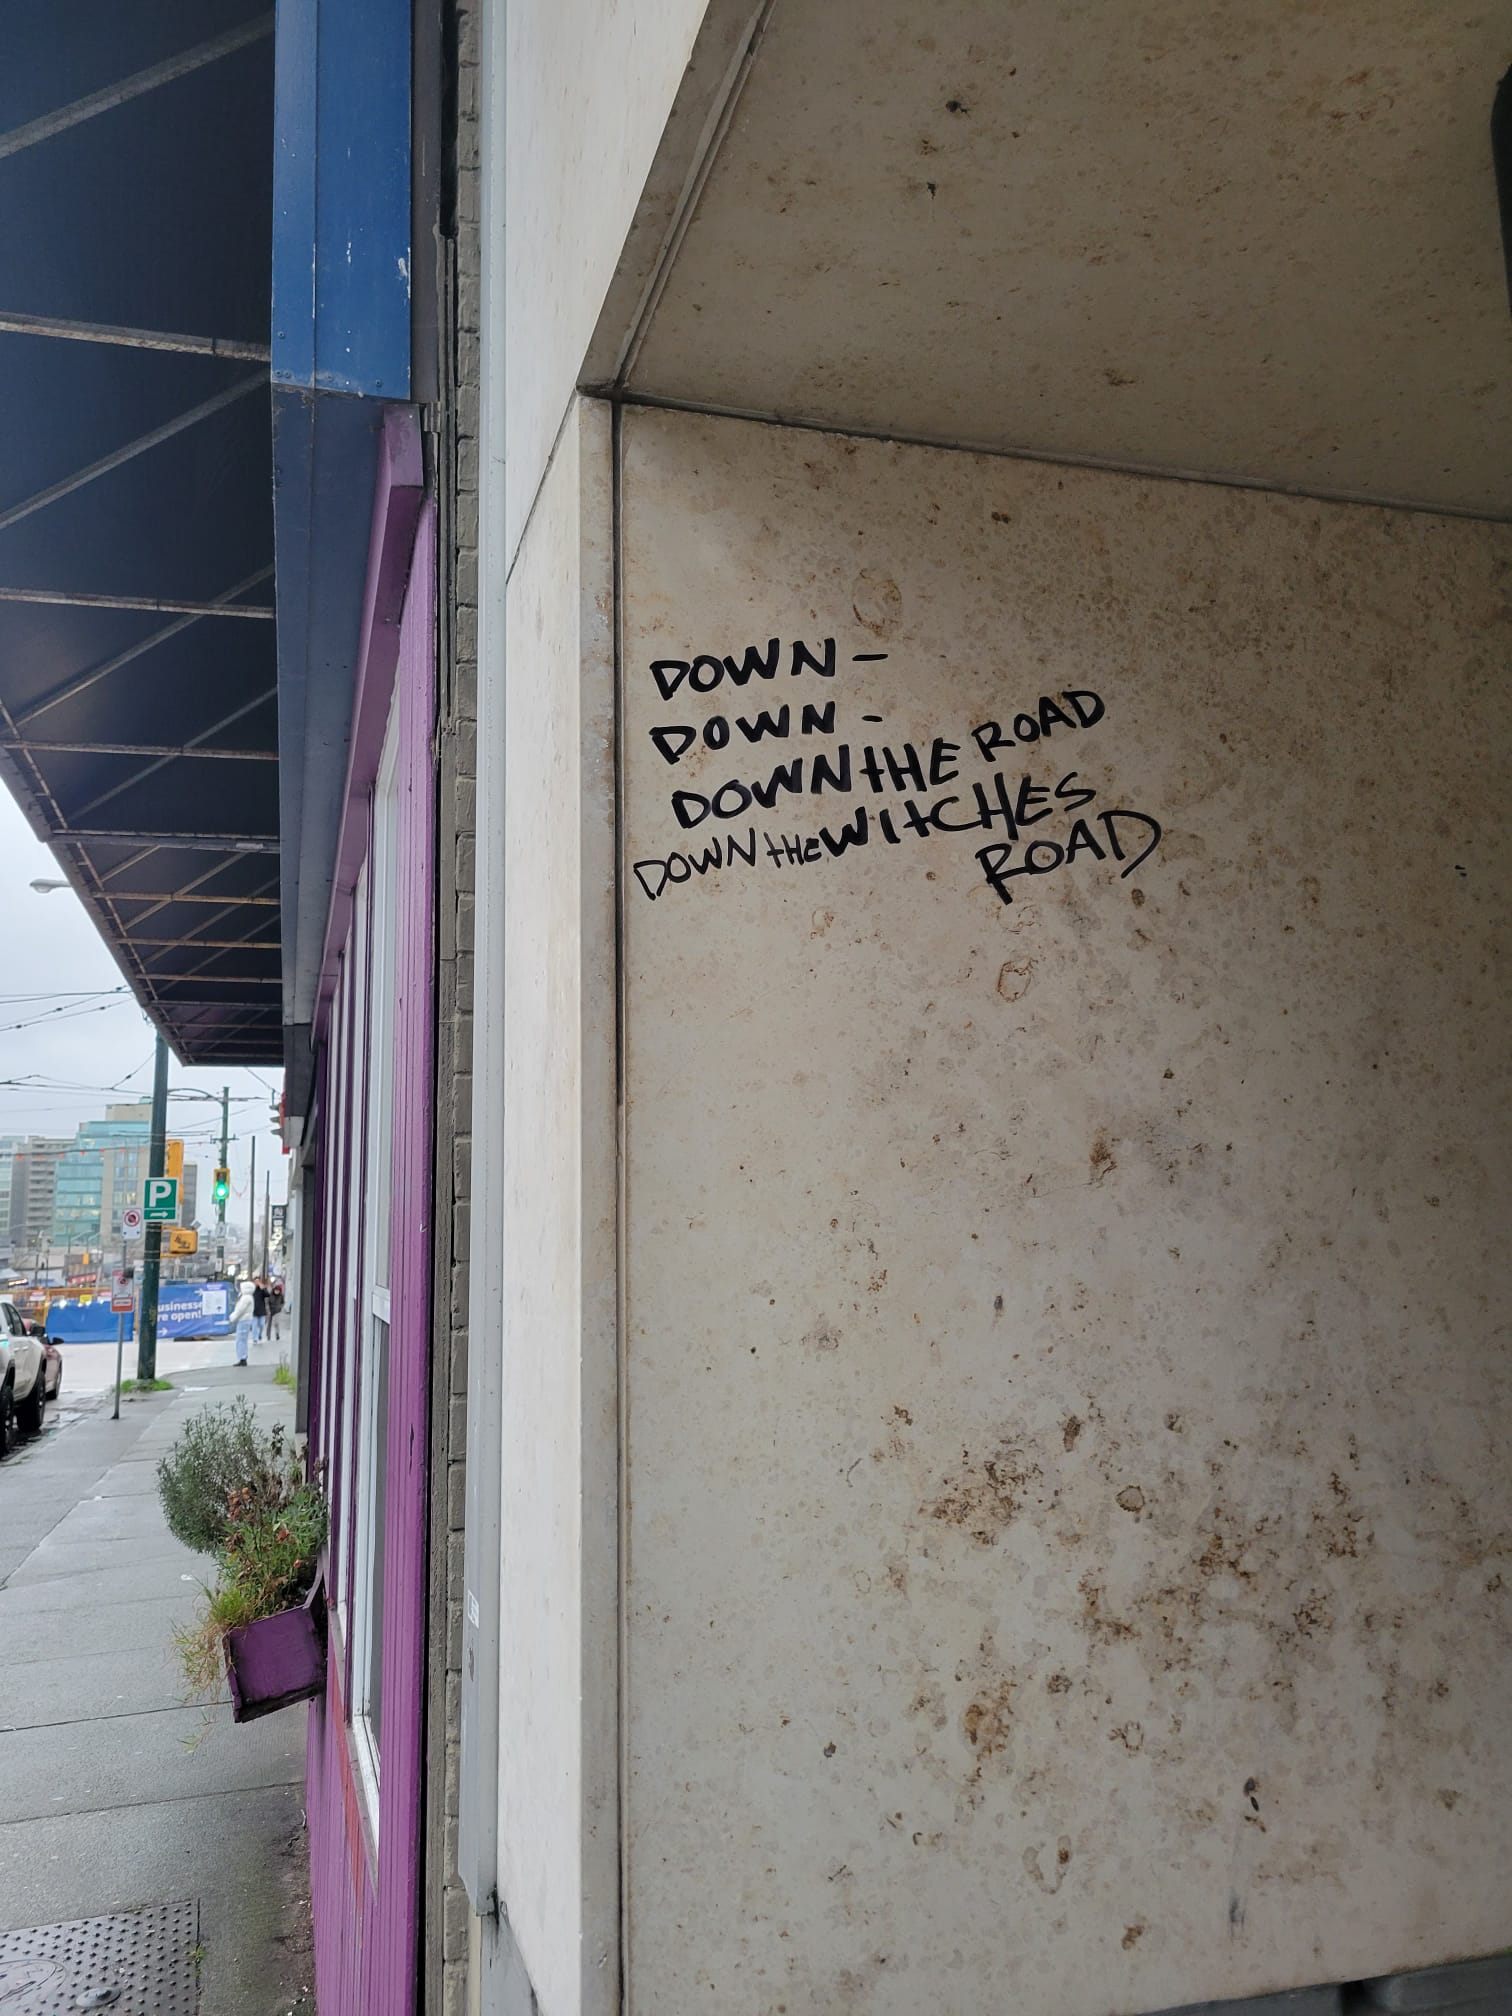 DOWN-
DOWN-
DOWN tHE ROAD
DOWN tHE WItCHES
ROAD
P
usinesse
re open!